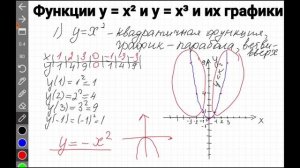 Функции y = x² и y = x³ и их графики
1) y = x² - квадратичная функция,
график - парабола, ветви
вверх
x
y
y(1) = 1² = 1
y(2) = 2² = 4
y(3) = 3² = 9
y(-1) = (-1)² = 1
y = -x²